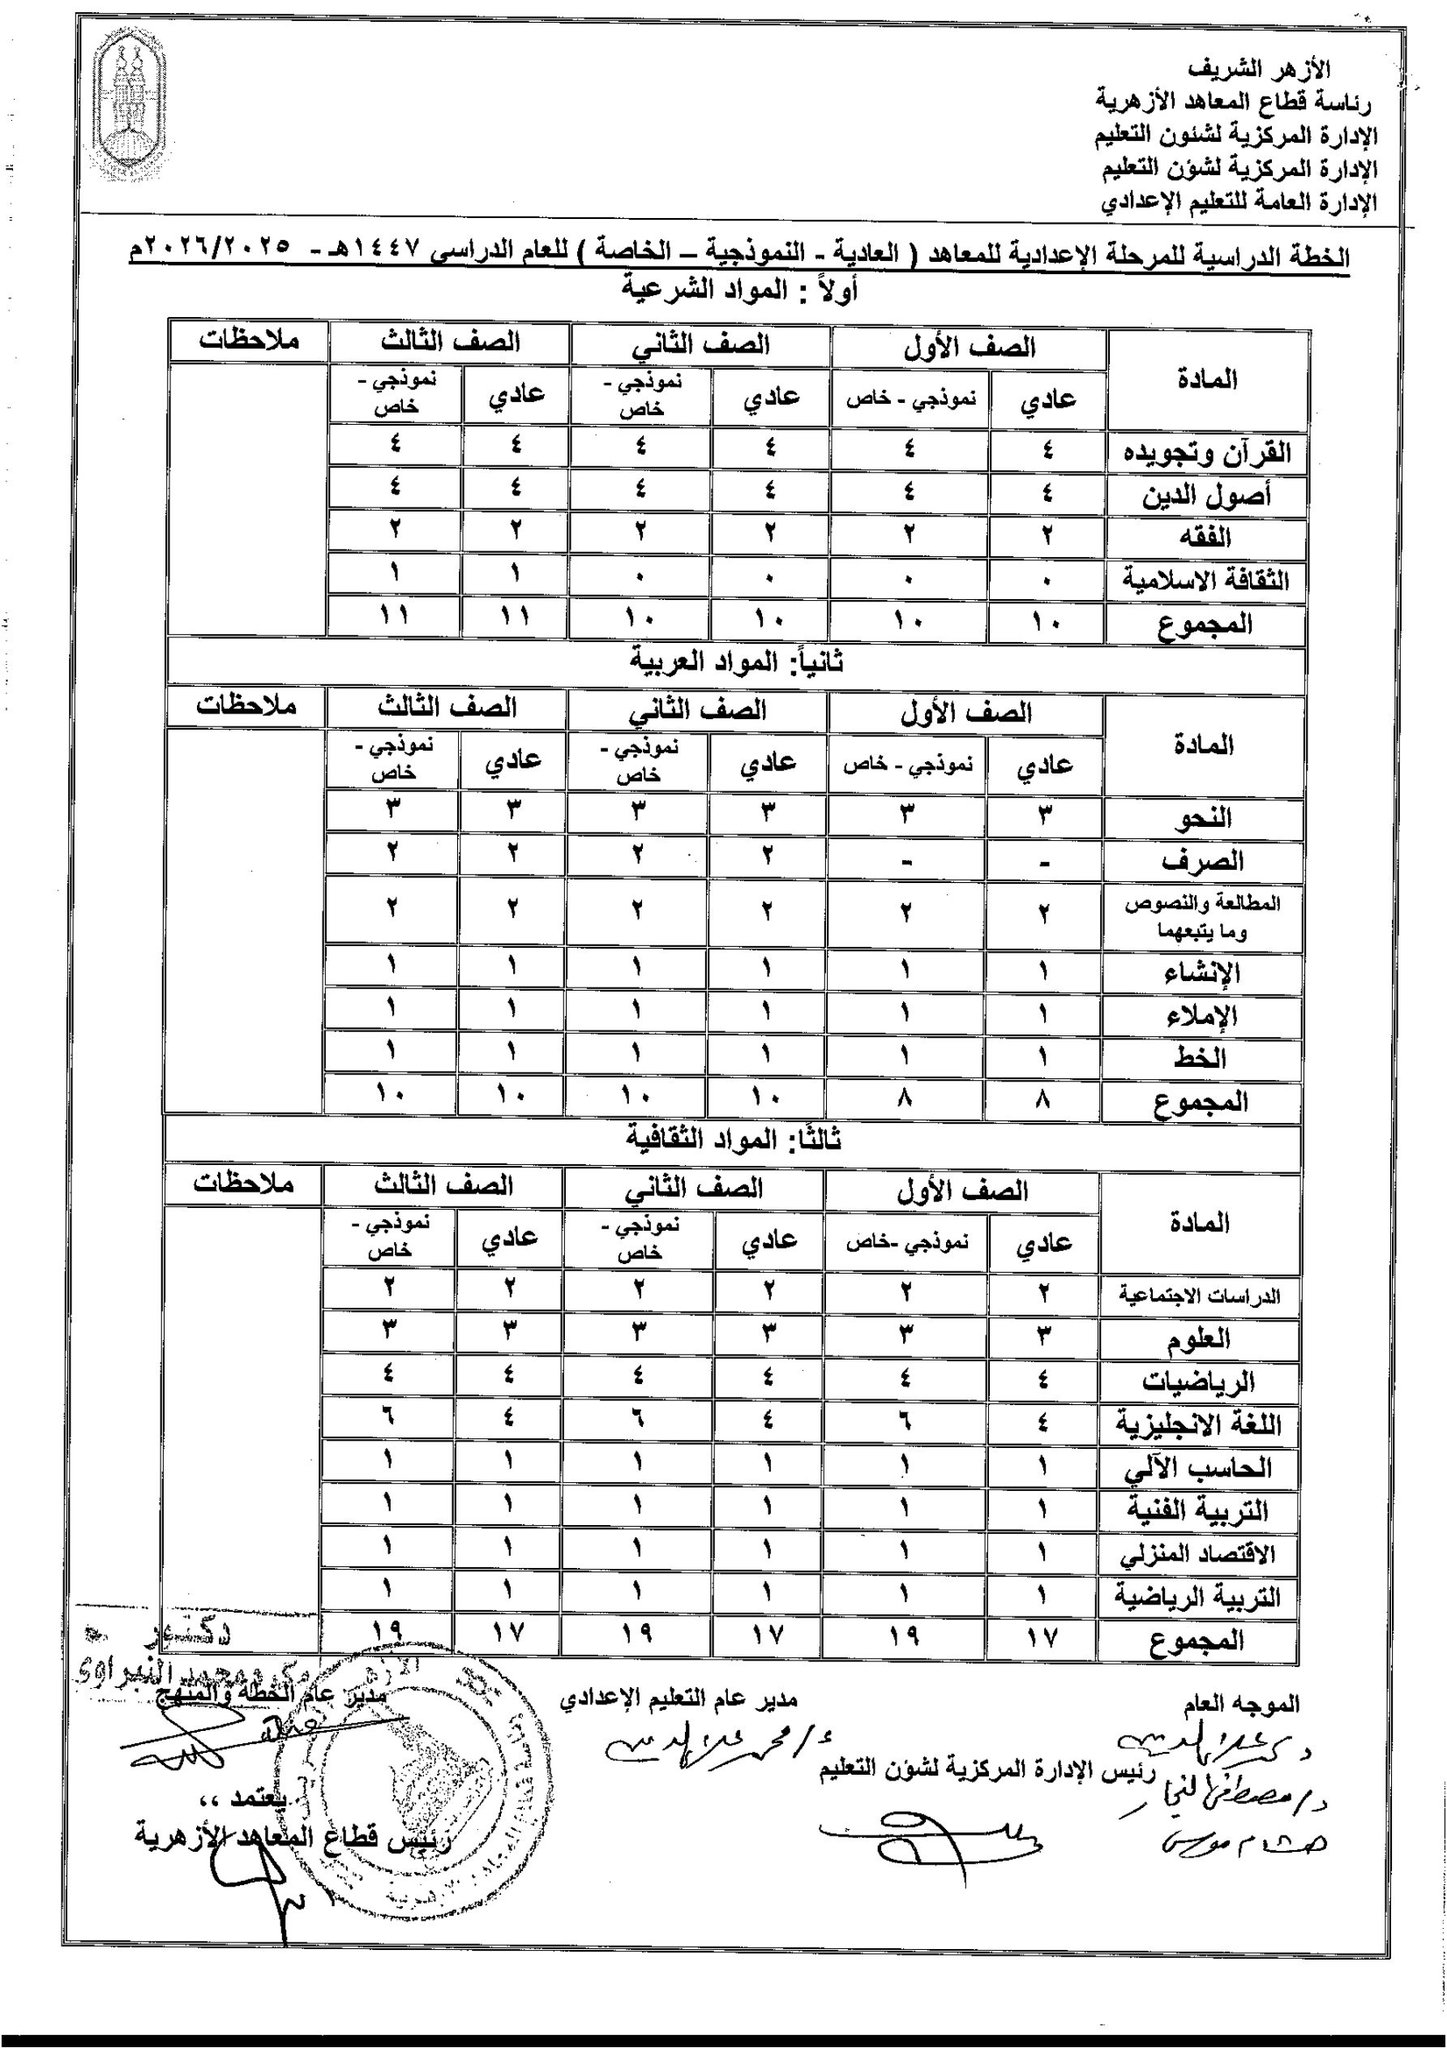 الأزهر الشريف
رئاسة قطاع المعاهد الأزهرية
الإدارة المركزية لشئون التعليم
الإدارة المركزية لشؤن التعليم
الإدارة العامة للتعليم الإعدادي
الخطة الدراسية للمرحلة الإعدادية للمعاهد ( العادية - النموذجية – الخاصة ) للعام الدراسي ١٤٤٧هـ - ٢٠٢٦/٢٠٢٥م
أولاً : المواد الشرعية
المادة الصف الأول الصف الثاني الصف الثالث ملاحظات
عادي نموذجي - خاص عادي نموذجي - خاص عادي نموذجي - خاص
القرآن وتجويده ٤ ٤ ٤ ٤ ٤ ٤
أصول الدين ٤ ٤ ٤ ٤ ٤ ٤
الفقه ٢ ٢ ٢ ٢ ٢ ٢
الثقافة الاسلامية ٠ ٠ ٠ ٠ ١ ١
المجموع ١٠ ١٠ ١٠ ١٠ ١١ ١١
ثانياً: المواد العربية
المادة الصف الأول الصف الثاني الصف الثالث ملاحظات
عادي نموذجي - خاص عادي نموذجي - خاص عادي نموذجي - خاص
النحو ٣ ٣ ٣ ٣ ٣ ٣
الصرف - - ٢ ٢ ٢ ٢
المطالعة والنصوص وما يتبعهما ٢ ٢ ٢ ٢ ٢ ٢
الإنشاء ١ ١ ١ ١ ١ ١
الإملاء ١ ١ ١ ١ ١ ١
الخط ١ ١ ١ ١ ١ ١
المجموع ٨ ٨ ١٠ ١٠ ١٠ ١٠
ثالثًا: المواد الثقافية
المادة الصف الأول الصف الثاني الصف الثالث ملاحظات
عادي نموذجي -خاص عادي نموذجي - خاص عادي نموذجي - خاص
الدراسات الاجتماعية ٢ ٢ ٢ ٢ ٢ ٢
العلوم ٣ ٣ ٣ ٣ ٣ ٣
الرياضيات ٤ ٤ ٤ ٤ ٤ ٤
اللغة الانجليزية ٤ ٦ ٤ ٦ ٤ ٦
الحاسب الآلي ١ ١ ١ ١ ١ ١
التربية الفنية ١ ١ ١ ١ ١ ١
الاقتصاد المنزلي ١ ١ ١ ١ ١ ١
التربية الرياضية ١ ١ ١ ١ ١ ١
المجموع ١٧ ١٩ ١٧ ١٩ ١٧ ١٩
دكتور
محمد النبراوي
الموجه العام مدير عام التعليم الإعدادي مدير عام الخطة والمنهج
رئيس الإدارة المركزية لشؤن التعليم
د/ مصطفى النجار
هشام موسى
يعتمد ،،
رئيس قطاع المعاهد الأزهرية